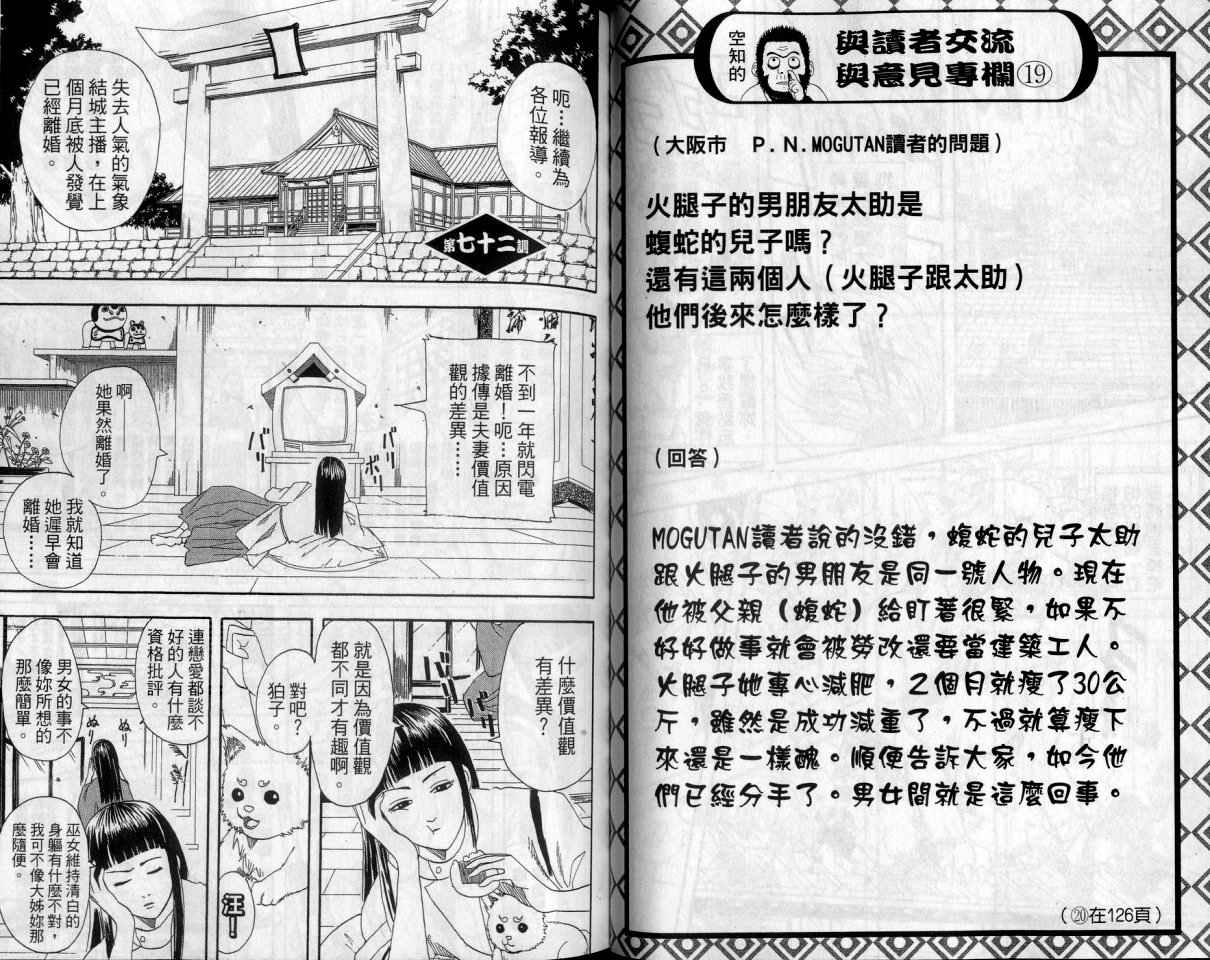 空知的
與讀者交流
與意見專欄⑲
（大阪市 P.N.MOGUTAN讀者的問題）
火腿子的男朋友太助是
蝮蛇的兒子嗎？
還有這兩個人（火腿子跟太助）
他們後來怎麼樣了？
（回答）
MOGUTAN讀者說的沒錯，蝮蛇的兒子太助
跟火腿子的男朋友是同一號人物。現在
他被父親（蝮蛇）給盯著很緊，如果不
好好做事就會被勞改還要當建築工人。
火腿子她專心減肥，2個月就瘦了30公
斤，雖然是成功減重了，不過就算瘦下
來還是一樣醜。順便告訴大家，如今他
們已經分手了。男女間就是這麼回事。
（⑳在126頁）
呃…繼續為
各位報導。
失去人氣的氣象
結城主播，在上
個月底被人發覺
已經離婚。
第七十二訓
不到一年就閃電
離婚！呃…原因
據傳是夫妻價值
觀的差異……
啊
她果然離婚了。
我就知道
她遲早會
離婚……
バリ
バリ
ボリ
什麼價值觀
有差異？
バリ
就是因為價值觀
都不同才有趣啊。
對吧？
狛子。
汪！
連戀愛都談不
好的人有什麼
資格批評。
男女的事不
像妳所想的
那麼簡單。
ぬり
ぬり
巫女維持清白的
身軀有什麼不對，
我可不像大姊妳那
麼隨便。